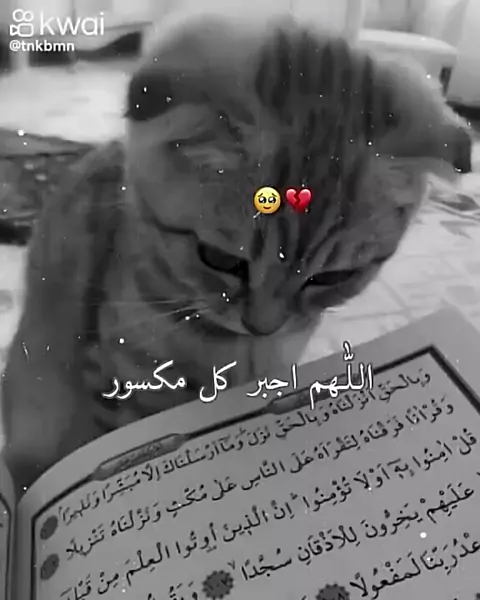 kwai
@tnkbmn
🥹💔
اللّٰهم اجبر كل مكسور
وَبِالْحَقِّ اَنْزَلْنَاهُ وَبِالْحَقِّ نَزَلَ وَمَا اَرْسَلْنَاكَ اِلَّا مُبَشِّرًا وَنَذِيرًا
وَقُرْاٰنًا فَرَقْنَاهُ لِتَقْرَاَهُ عَلَى النَّاسِ عَلٰى مُكْثٍ وَنَزَّلْنَاهُ تَنْزِيلًا
قُلْ اٰمِنُوا بِهٖٓ اَوْ لَا تُؤْمِنُوا اِنَّ الَّذِينَ اُوتُوا الْعِلْمَ مِنْ
عَلَيْهِمْ يَخِرُّونَ لِلْاَذْقَانِ سُجَّدًا
رَبِّنَا لَمَفْعُولًا